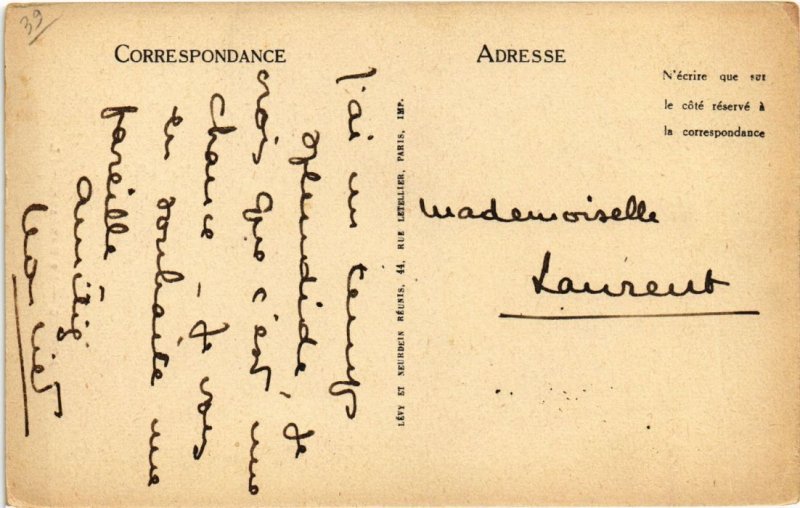 39
CORRESPONDANCE
J'ai un temps
splendide. Je
crois que c'est une
chance - Je vous
en souhaite une
pareille
Amitiés
ADRESSE
N'écrire que sur
le côté réservé à
la correspondance
Mademoiselle
Laurent
LÉVY ET NEURDEIN RÉUNIS, 44, RUE LETELLIER, PARIS, IMP.